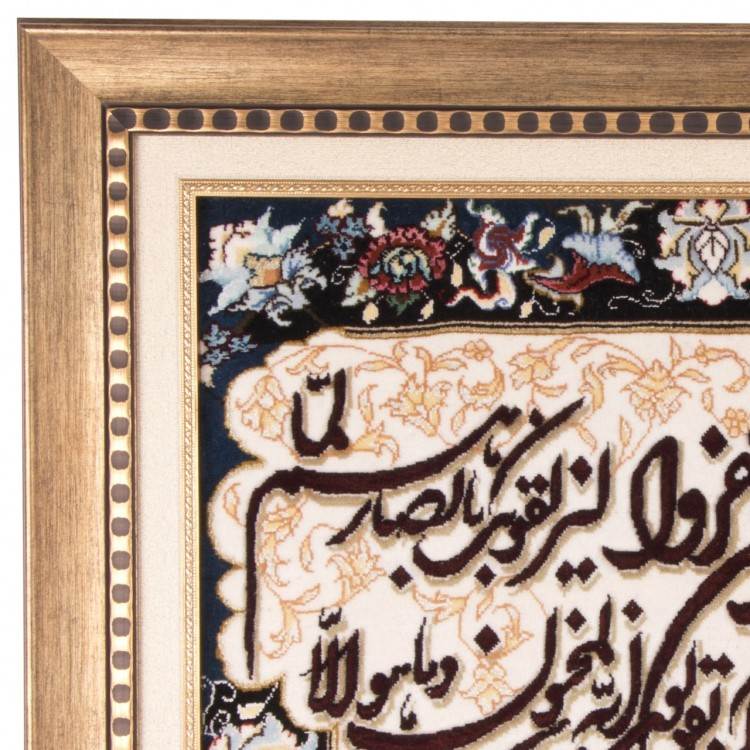 كفروا ليزلقونك بأبصارهم لمّا
ويقولون إنه لمجنون وما هو إلا